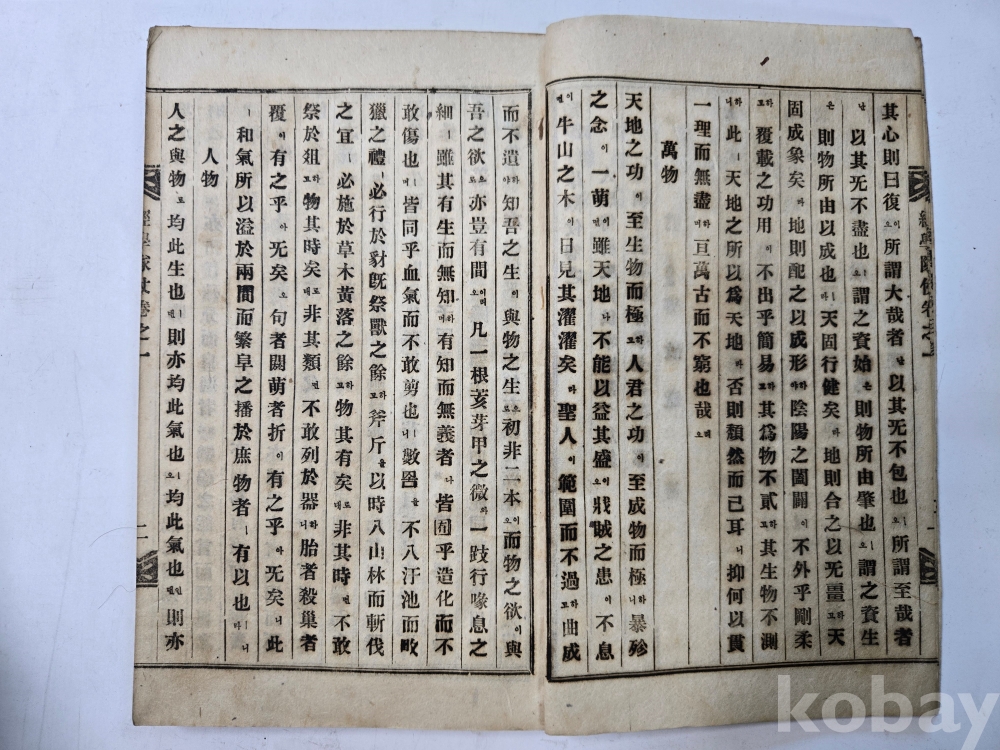 其心則曰復이오所謂大哉者난以其无不包也ㅣ오所謂至哉者
난以其无不盡也ㅣ오謂之資始은則物所由肇也ㅣ오謂之資生
은則物所由以成也ㅣ라天固行健矣라地則合之以无疆하라天
固成象矣라地則配之以成形하야陰陽之闔闢이不外乎剛柔
하고覆載之功用이不出乎簡易하고其爲物不貳하고其生物不測
하니此ㅣ天地之所以爲天地라否則頹然而已耳니抑何以貫
一理而無盡하며亘萬古而不窮也哉리오
萬物
天地之功이至生物而極하고人君之功이至成物而極하니暴殄
之念이一萌이면雖天地나不能以益其盛오戕賊之患이不息
이면牛山之木이日見其濯濯矣라聖人이範圍而不過하고曲成
而不遺하야知吾之生이與物之生으로初非二本이오而物之欲이與
吾之欲으로亦豈有間이리오凡一根荄芽甲之微와一跂行喙息之
細ㅣ雖其有生而無知하며有知而無義者나皆囿乎造化而不
敢傷也며皆同乎血氣而不敢剪也니數罟을不入汙池而畋
獵之禮ㅣ必行於豺旣祭獸之餘하고斧斤을以時入山林而斬伐
之宜ㅣ必施於草木黃落之餘하고物其有矣로대非其時면不敢
祭於俎하고物其時矣로대非其類면不敢列於器하니胎者殺巢者
覆이有之乎아无矣오句者闢萌者折이有之乎아无矣니此
ㅣ和氣所以溢於兩間而繁阜之播於庶物者ㅣ有以也니라
人物
人之與物로均此生也ㅣ면則亦均此氣也ㅣ오均此氣也인면則亦
經學隊仗卷之一 二
kobay